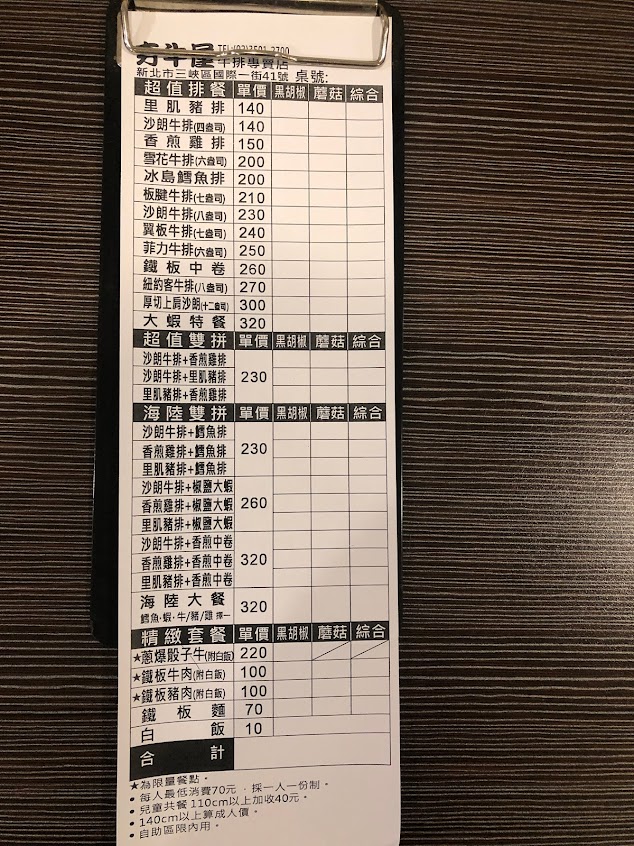 牛屋 TEL:(02)3501-2700
牛排專賣店
新北市三峽區國際一街41號 桌號:
超值排餐 單價 黑胡椒 蘑菇 綜合
里肌豬排 140
沙朗牛排(四盎司) 140
香煎雞排 150
雪花牛排(六盎司) 200
冰島鱈魚排 200
板腱牛排(七盎司) 210
沙朗牛排(八盎司) 230
翼板牛排(七盎司) 240
菲力牛排(六盎司) 250
鐵板中卷 260
紐約客牛排(八盎司) 270
厚切上肩沙朗(十二盎司) 300
大蝦特餐 320
超值雙拼 單價 黑胡椒 蘑菇 綜合
沙朗牛排+香煎雞排
沙朗牛排+里肌豬排 230
里肌豬排+香煎雞排
海陸雙拼 單價 黑胡椒 蘑菇 綜合
沙朗牛排+鱈魚排
香煎雞排+鱈魚排 230
里肌豬排+鱈魚排
沙朗牛排+椒鹽大蝦
香煎雞排+椒鹽大蝦 260
里肌豬排+椒鹽大蝦
沙朗牛排+香煎中卷
香煎雞排+香煎中卷 320
里肌豬排+香煎中卷
海陸大餐 320
鱈魚·蝦·牛/豬/雞 擇一
精緻套餐 單價 黑胡椒 蘑菇 綜合
★蔥爆骰子牛(附白飯) 220
★鐵板牛肉(附白飯) 100
★鐵板豬肉(附白飯) 100
鐵板麵 70
白飯 10
合計
★為限量餐點。
• 每人最低消費70元，採一人一份制。
• 兒童共餐 110cm以上加收40元。
• 140cm以上算成人價。
• 自助區限內用。